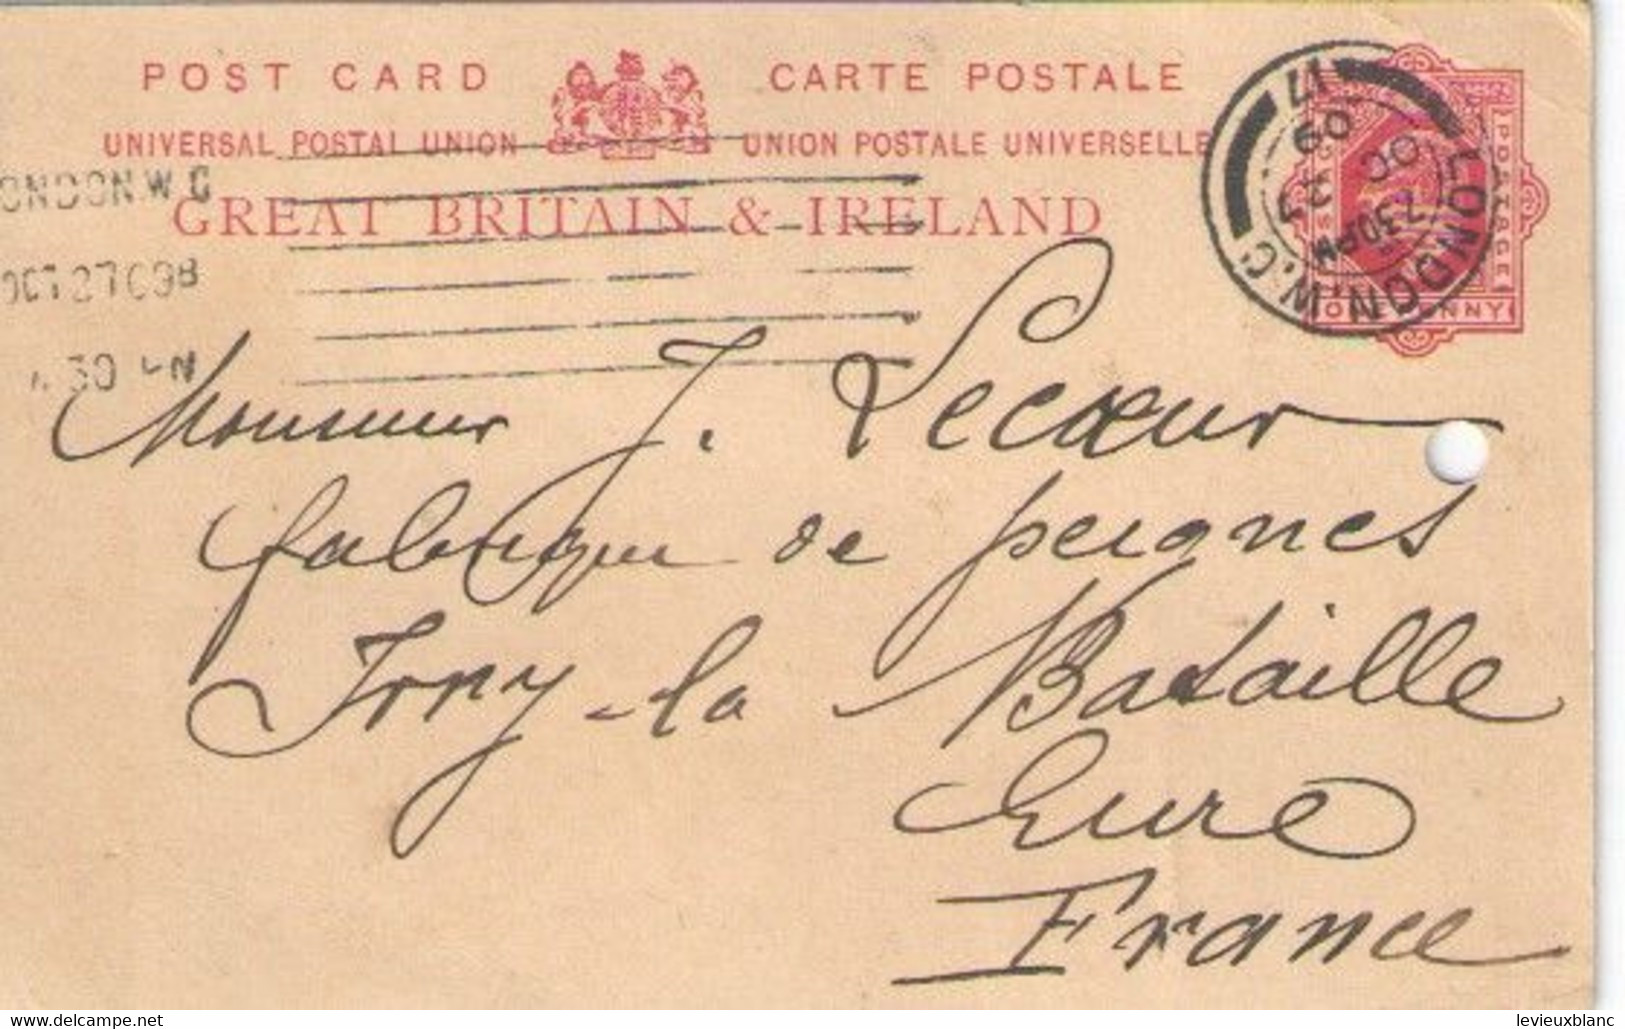 POST CARD
CARTE POSTALE
UNIVERSAL POSTAL UNION
UNION POSTALE UNIVERSELLE
GREAT BRITAIN & IRELAND
ONDON.W.C
OCT 27 09
LONDON.W.C.
17
7 30 PM
OC 27
09
POSTAGE
ONE PENNY
Monsieur J. Lecœur
fabrique de peignes
Ivry-la Bataille
Eure
France
Click to view full-size photo
levieuxblanc